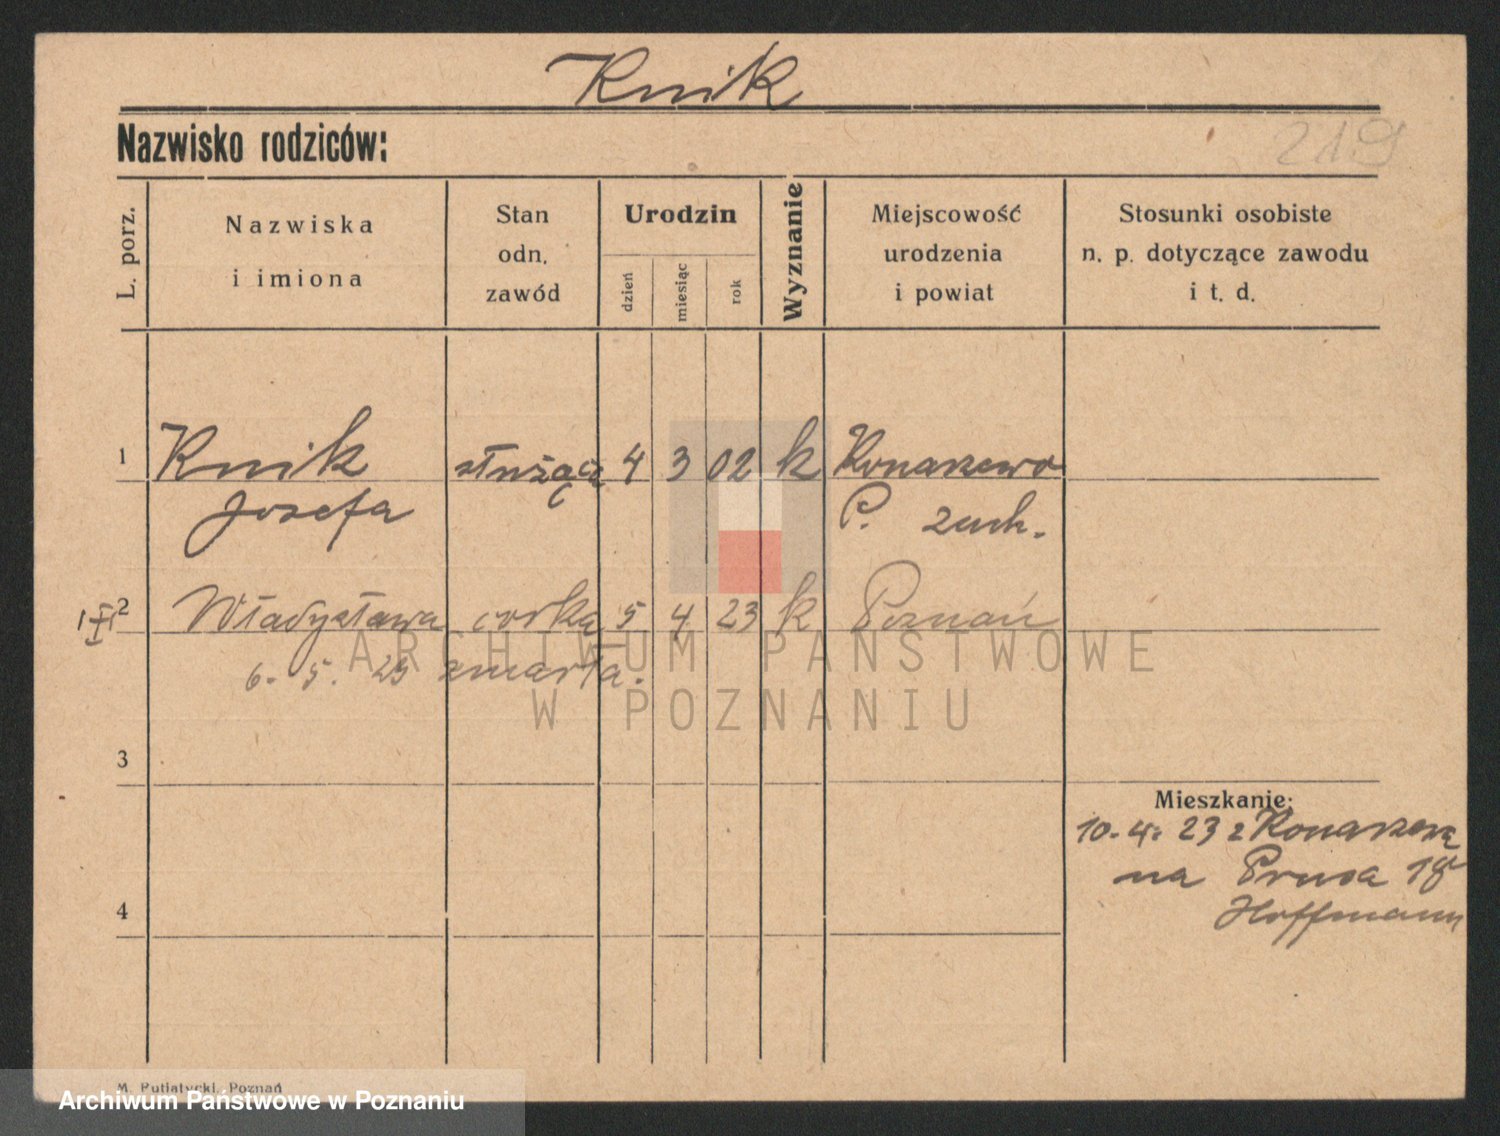 Knik
Nazwisko rodziców:
219
L. porz.
Nazwiska
i imiona
Stan
odn.
zawód
Urodzin
dzień
miesiąc
rok
Wyznanie
Miejscowość
urodzenia
i powiat
Stosunki osobiste
n. p. dotyczące zawodu
i t. d.
1 Knik służąca 4 3 02 k Konarzewo
Josefa P. zach.
2 Władysława corka 5 4 23 k Poznań
6. 5. 23 zmarła.
ARCHIWUM PAŃSTWOWE
W POZNANIU
3
Mieszkanie:
10. 4. 23 z Konarzewa
na Prusa 18
Hoffmann
4
M. Putiatycki, Poznań
Archiwum Państwowe w Poznaniu